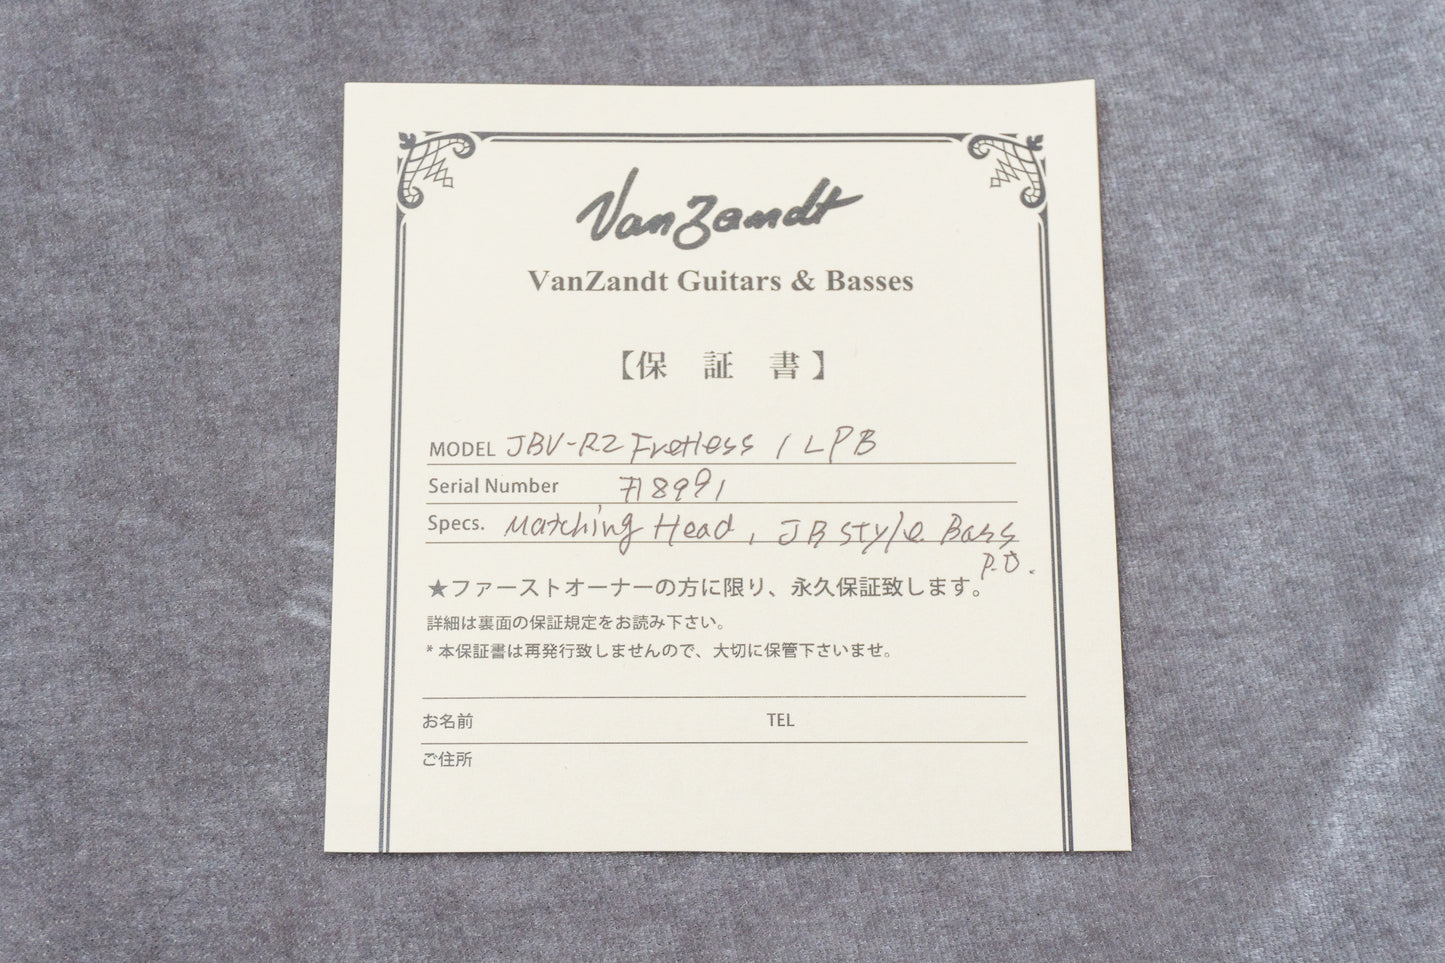 VanZandt
VanZandt Guitars & Basses
【保 証 書】
MODEL JBV-R2 Fretless / LPB
Serial Number 718991
Specs. Matching Head, JB style Bass
P.O.
★ファーストオーナーの方に限り、永久保証致します。
詳細は裏面の保証規定をお読み下さい。
* 本保証書は再発行致しませんので、大切に保管下さいませ。
お名前 TEL
ご住所